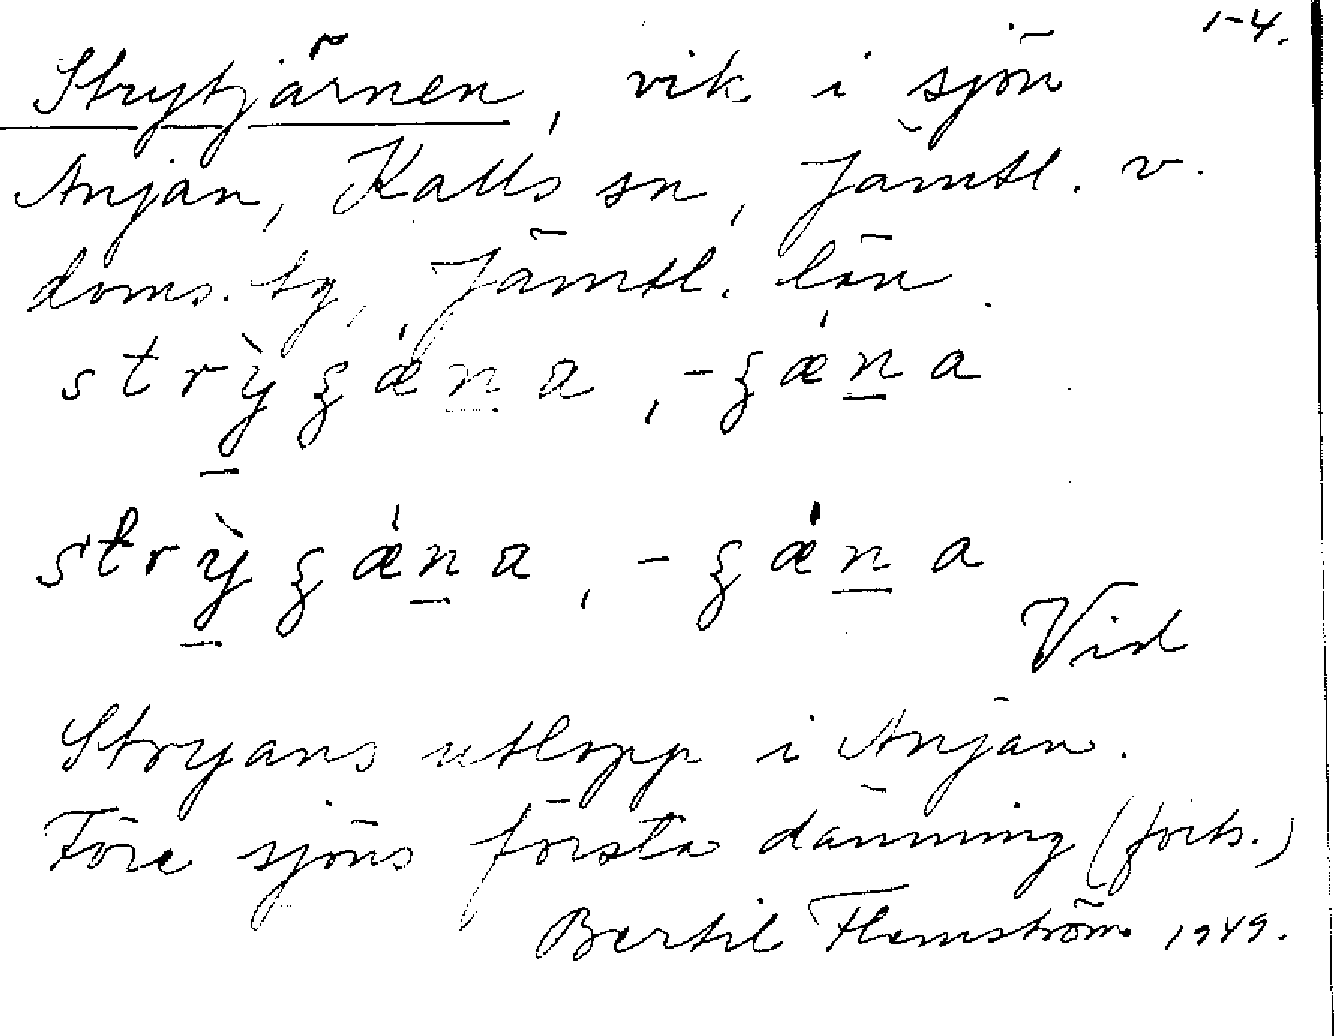 1-4.
Strytjärnen, vik i sjön
Anjan, Kalls sn, Jämtl. v.
doms. tg, Jämtl. län.
strỳʒǽna, -ʒǽna
strỳʒǽna, -ʒǽna
Vid
Stryans utlopp i Anjan.
Före sjöns första dämning (forts.)
Bertil Flemström 1949.